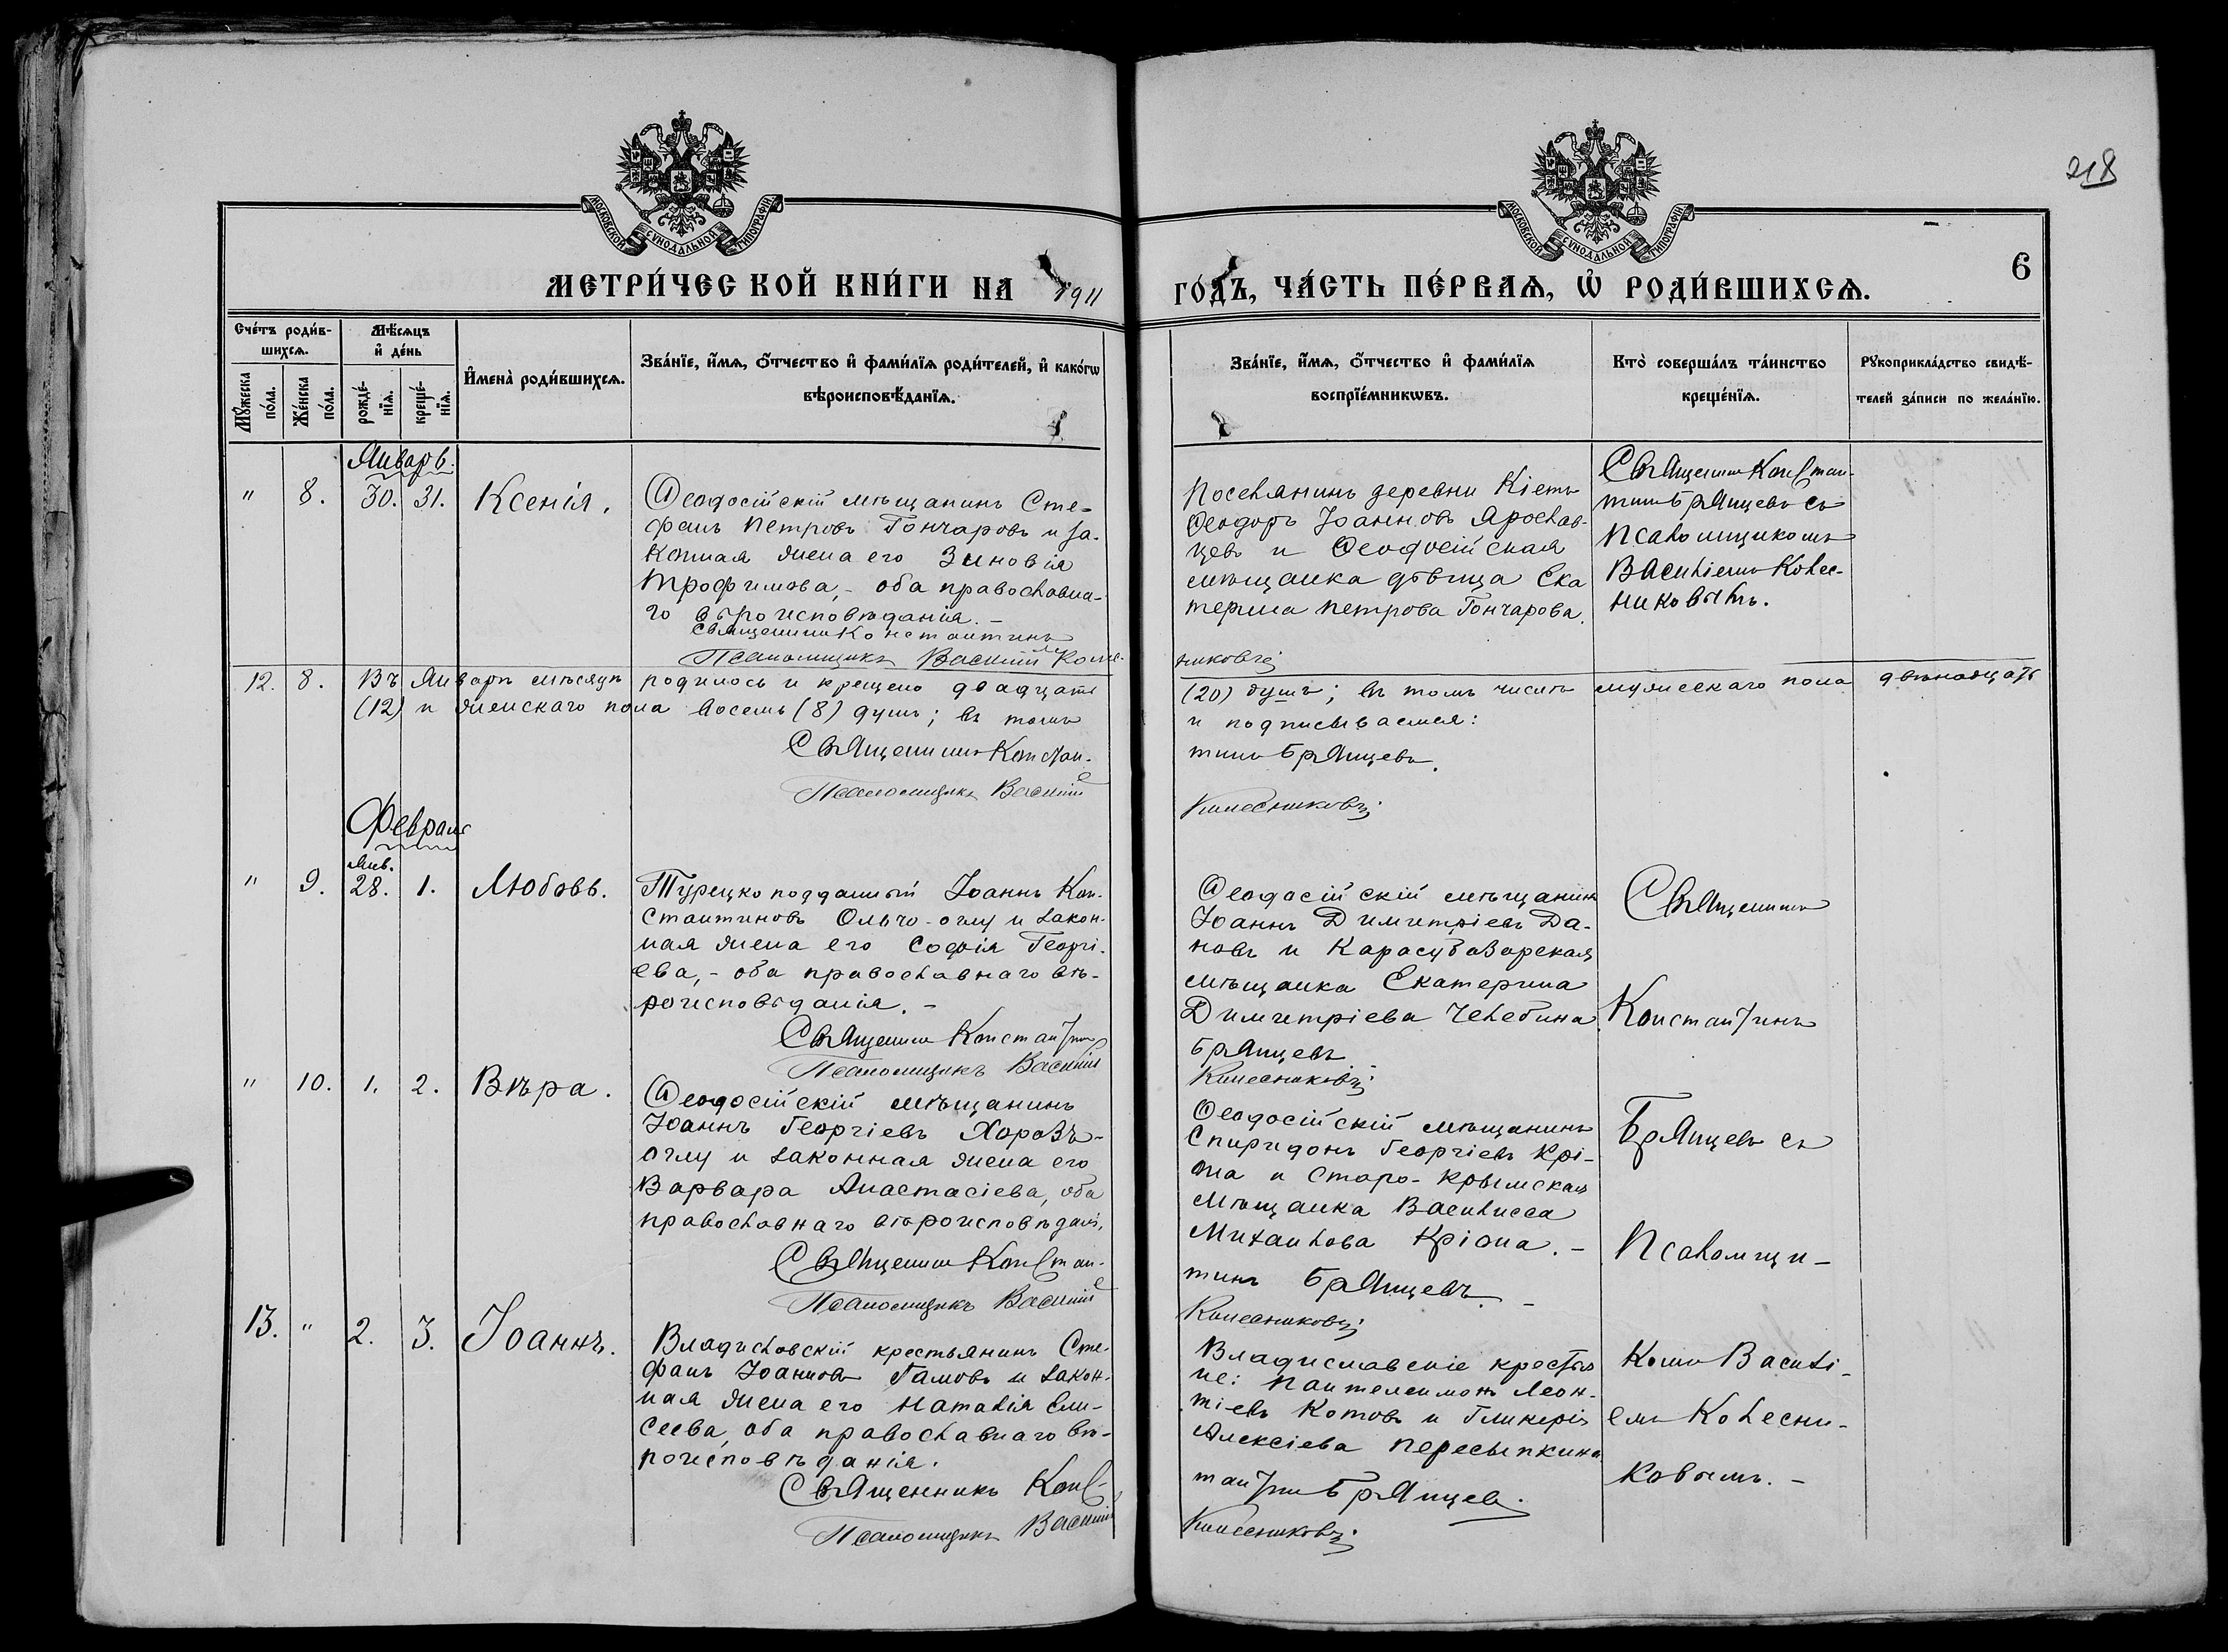 218
МОСКОВСКОЙ СѴНОДАЛЬНОЙ ТИПОГРАФІИ
МОСКОВСКОЙ СѴНОДАЛЬНОЙ ТИПОГРАФІИ
МЕТРИ́ЧЕСКОЙ КНИ́ГИ НА 1911
ГО́ДЪ, ЧА́СТЬ ПЕ́РВАѦ, Ѡ҆ РОДИ́ВШИХСѦ.
6
Сче́тъ роди́в-
шихсѧ.
Мꙋ́жеска по́ла.
Же́нска по́ла.
Мѣ́сѧцъ
и҆ де́нь
рожде́-
нїѧ.
креще́-
нїѧ.
И҆мена̀ роди́вшихсѧ.
Зва́нїе, и҆́мѧ, ѻ҆́тчество и҆ фами́лїѧ роди́телей, и҆ како́гѡ
вѣроисповѣ́данїѧ.
Зва́нїе, и҆́мѧ, ѻ҆́тчество и҆ фами́лїѧ
воспрїе́мникѡвъ.
Кто̀ соверша́лъ та́инство
креще́нїѧ.
Рꙋкоприкла́дство свидѣ́-
телей за́писи по жела́нїю.
Январь.
" 8. 30. 31. Ксенія.
Ѳеодосійскій мѣщанинъ Сте-
фанъ Петровъ Гончаровъ и за-
конная жена его Зиновія
Трофимова, - оба православна-
го вѣроисповѣданія. -
Священникъ Константинъ
Псаломщикъ Василій Колес-
Поселянинъ деревни Кіетъ
Ѳеодоръ Іоанновъ Ярослав-
цевъ и Ѳеодосійская
мѣщанка дѣвица Ека
терина Петрова Гончарова.
никовъ
Священникъ Констан-
тинъ Брянцевъ съ
Псаломщикомъ
Василіемъ Колес-
никовымъ.
12. 8. Въ Январѣ мѣсяцѣ родилось и крещено двадцать (20) душъ; въ томъ числѣ мужескаго пола двѣнадцать
(12) и женскаго пола восемь (8) душъ; въ томъ и подписываемся:
Священникъ Констан- тинъ Брянцевъ.
Псаломщикъ Василій Колесниковъ
Февраль
" 9. Янв. 28. 1. Любовь.
Турецко подданный Іоаннъ Кон-
стантиновъ Ольчо-оглу и закон-
ная жена его Софія Георгі-
ева, - оба православнаго вѣ-
роисповѣданія. -
Священникъ Константинъ
Псаломщикъ Василій
Ѳеодосійскій мѣщанинъ
Іоаннъ Димитріевъ Да-
новъ и Карасубазарская
мѣщанка Екатерина
Димитріева Челебина
Брянцевъ
Колесниковъ
Священникъ
Константинъ
" 10. 1. 2. Вѣра.
Ѳеодосійскій мѣщанинъ
Іоаннъ Георгіевъ Харазъ-
оглу и законная жена его
Варвара Анастасіева, оба
православнаго вѣроисповѣдані.
Священникъ Констан-
Псаломщикъ Василій
Ѳеодосійскій мѣщанинъ
Спиридонъ Георгіевъ Крі-
она и Старо-Крымская
мѣщанка Василисса
Михаилова Кріона. -
тинъ Брянцевъ.
Колесниковъ
Брянцевъ съ
Псаломщи-
13. " 2. 3. Іоаннъ.
Владиславскій крестьянинъ Сте-
фанъ Іоанновъ Гамовъ и закон-
ная жена его Наталія Ели-
сеева, оба православнаго вѣ-
роисповѣданія.
Священникъ Конс-
Псаломщикъ Василій
Владиславскіе крестья
не: Пантелеимонъ Леон-
тіевъ Котовъ и Гликерія
Алексіева Пересыпкина
тантинъ Брянцевъ.
Колесниковъ
комъ Василі-
емъ Колесни-
ковымъ. -